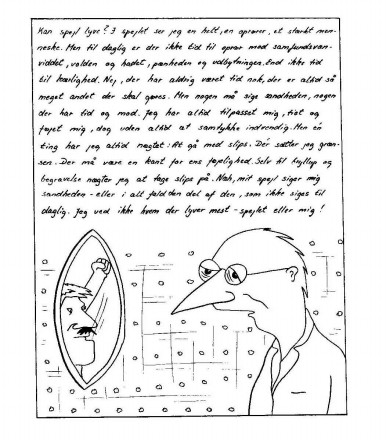 Kan spejl lyve? I spejlet ser jeg en helt, en oprører, et stærkt men-
neske. Men til daglig er der ikke tid til oprør mod samfundsvan-
viddet, volden og hadet, pænheden og udbytningen. End ikke tid
til kærlighed. Nej, der har aldrig været tid nok, der er altid så
meget andet der skal gøres. Men nogen må sige sandheden, nogen
der har tid og mod. Jeg har altid tilpasset mig, tiet og
føjet mig, dog uden altid at samtykke indvendig. Men én
ting har jeg altid nægtet: At gå med slips. Der sætter jeg græn-
sen. Der må være en kant for ens føjelighed. Selv til bryllup og
begravelse nægter jeg at tage slips på. Nah, mit spejl siger mig
sandheden - eller i alt fald den del af den, som ikke siges til
daglig. Jeg ved ikke hvem der lyver mest - spejlet eller mig!